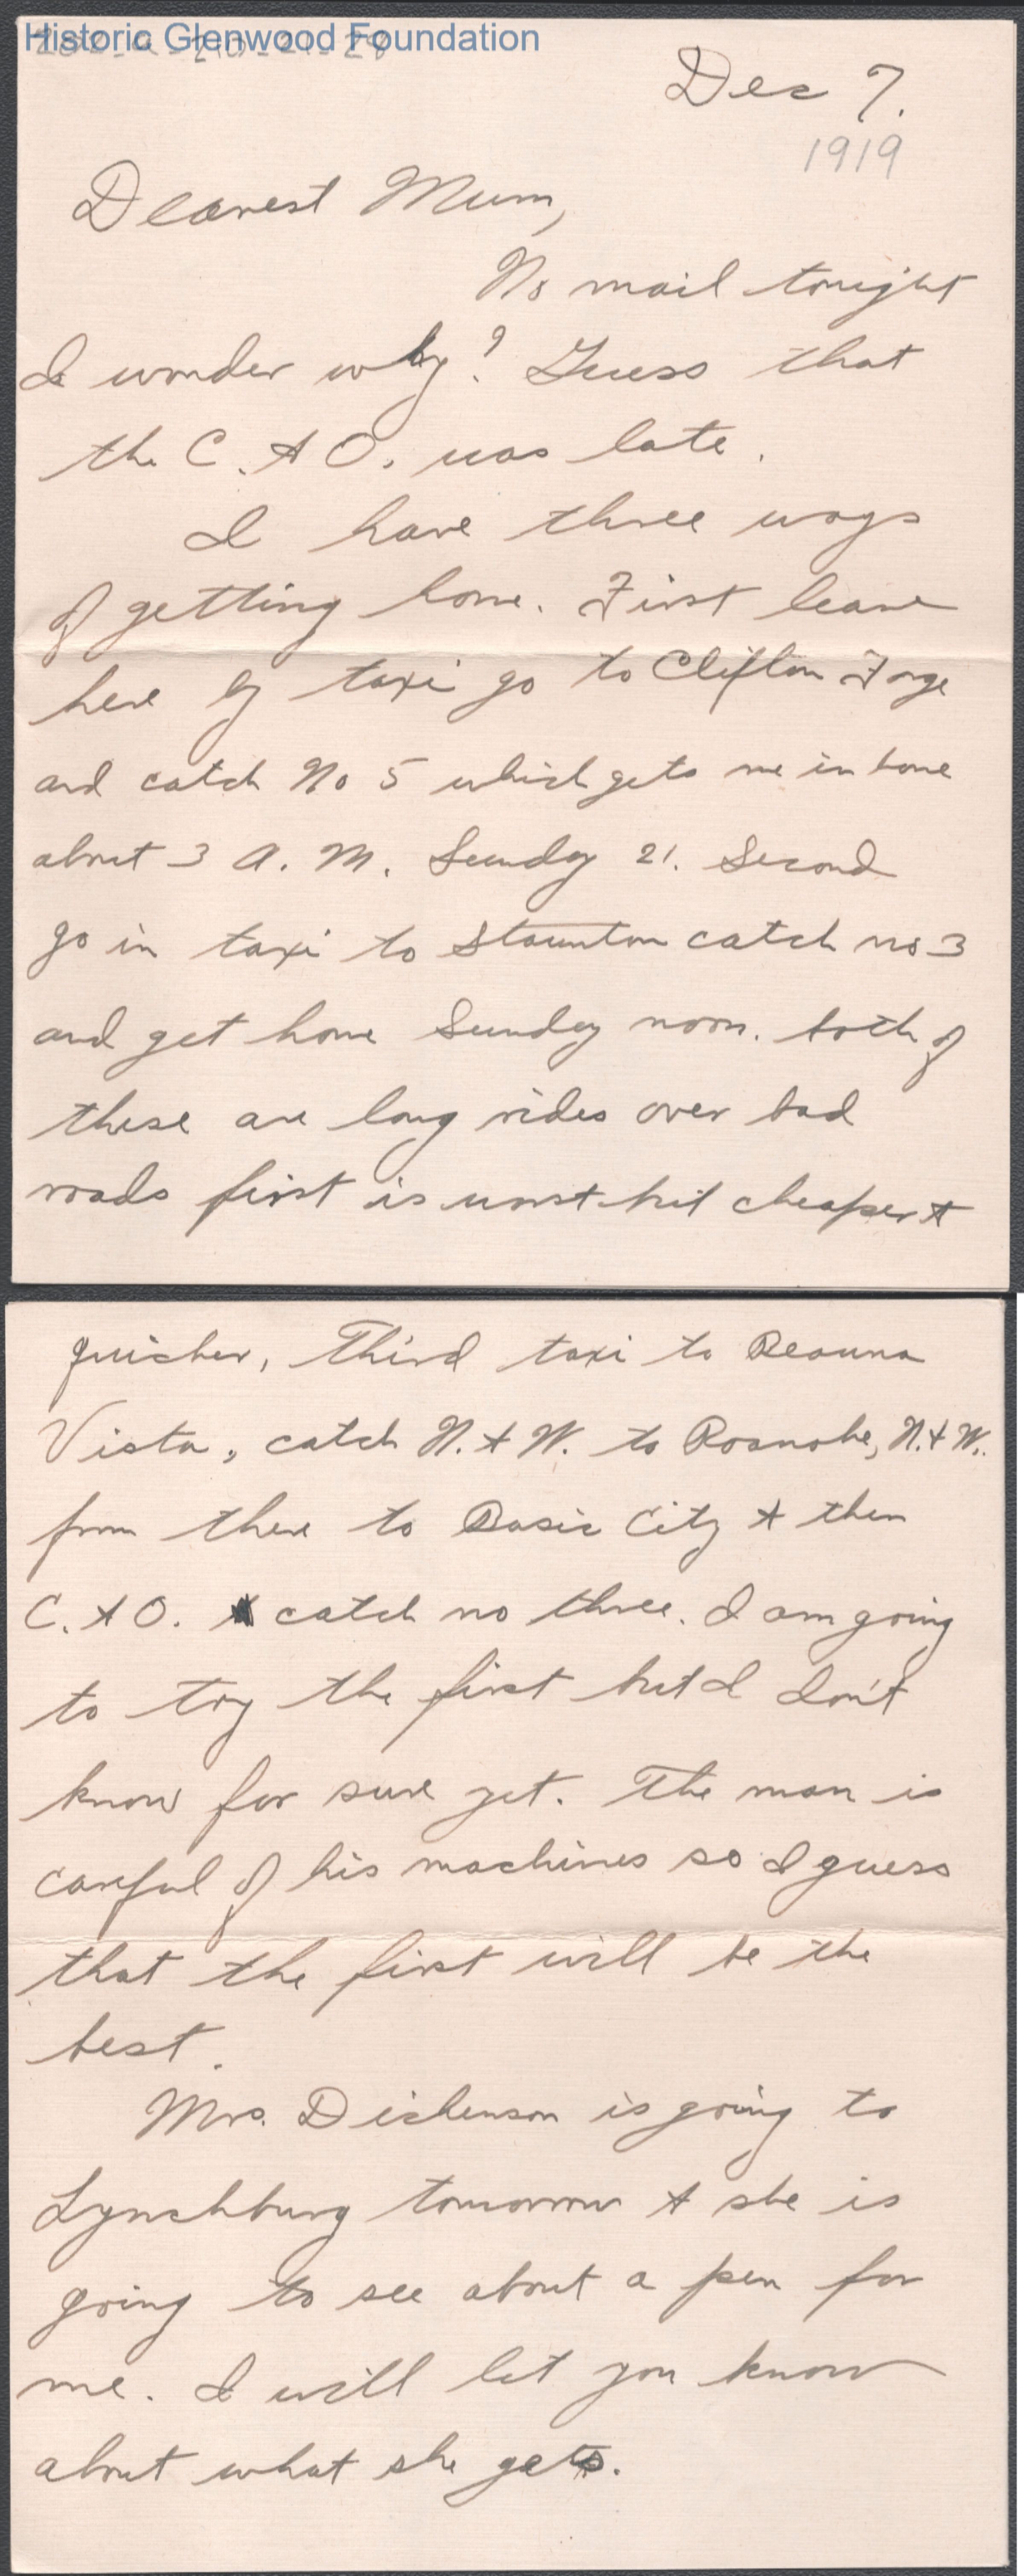 Historic Glenwood Foundation
Dec 7.
1919
Dearest Mum,
No mail tonight
I wonder why? Guess that
the C. & O. was late.
I have three ways
of getting home. First leave
here by taxi go to Clifton Forge
and catch No 5 which gets me in home
about 3 A. M. Sunday 21. Second
go in taxi to Staunton catch no 3
and get home Sunday noon. both of
these are long rides over bad
roads first is worst but cheaper &
quicker, Third taxi to Beauna
Vista, catch N. & W. to Roanoke, N. & W.
from there to Basic City & then
C. & O. catch no three. I am going
to try the first but I don't
know for sure yet. The man is
careful of his machines so I guess
that the first will be the
best.
Mrs. Dickenson is going to
Lynchburg tomorrow & she is
going to see about a pen for
me. I will let you know
about what she gets.